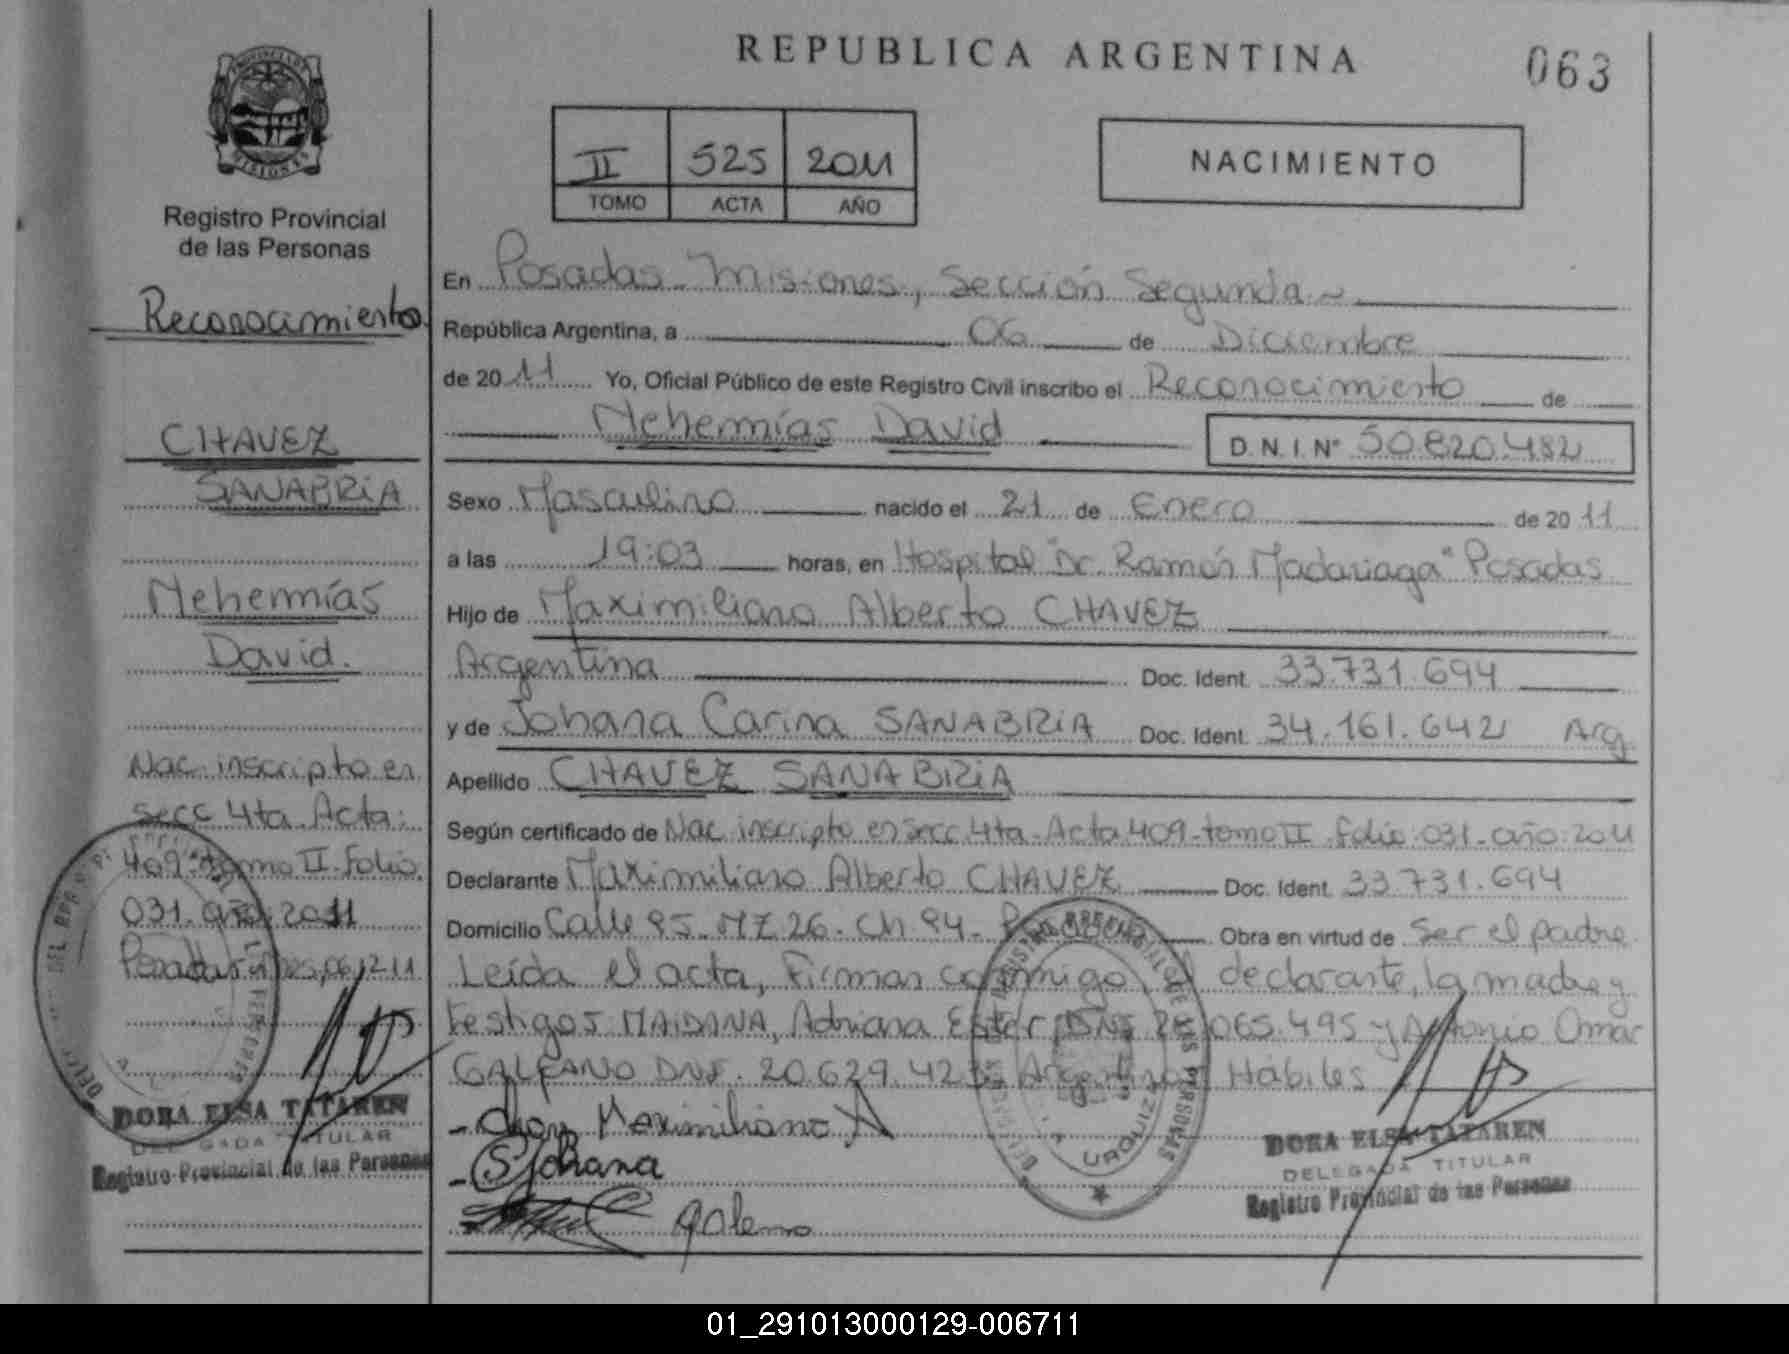 REPUBLICA ARGENTINA
063
PROVINCIA DE
MISIONES
Registro Provincial
de las Personas
II 525 2011
TOMO ACTA AÑO
NACIMIENTO
Reconocimiento
CHAVEZ
SANABRIA
Nehemías
David.
Nac. inscripto en
secc 4ta. Acta:
409 tomo II. Folio.
031. año. 2011
Posadas 06.12.11
DORA ELSA TATAREN
DELEGADA TITULAR
Registro Provincial de las Personas
En Posadas - Misiones, Sección Segunda
República Argentina, a 06 de Diciembre
de 2011 Yo, Oficial Público de este Registro Civil inscribo el Reconocimiento de
Nehemías David D.N.I. Nº 50.820.482
Sexo Masculino nacido el 21 de Enero de 2011
a las 19:03 horas, en Hospital "Dr. Ramón Madariaga" Posadas
Hijo de Maximiliano Alberto CHAVEZ
Argentina Doc. Ident. 33.731.694
y de Johana Carina SANABRIA Doc. Ident. 34.161.642 Arg.
Apellido CHAVEZ SANABRIA
Según certificado de Nac. inscripto en secc. 4ta. Acta 409 - tomo II. folio: 031. año: 2011
Declarante Maximiliano Alberto CHAVEZ Doc. Ident. 33.731.694
Domicilio Calle 95. MZ 26. Ch 94. Obra en virtud de Ser el padre.
Leída el acta, Firman conmigo, el declarante, la madre y
testigos: MAIDANA, Adriana Ester, DNI 065.495 y Antonio Omar
GALEANO DNI. 20.629.42 Argentinos Hábiles
Chav Maximiliano A
S Johana
Galeano
URQUIZA
DORA ELSA TATAREN
DELEGADA TITULAR
Registro Provincial de las Personas
01_291013000129-006711